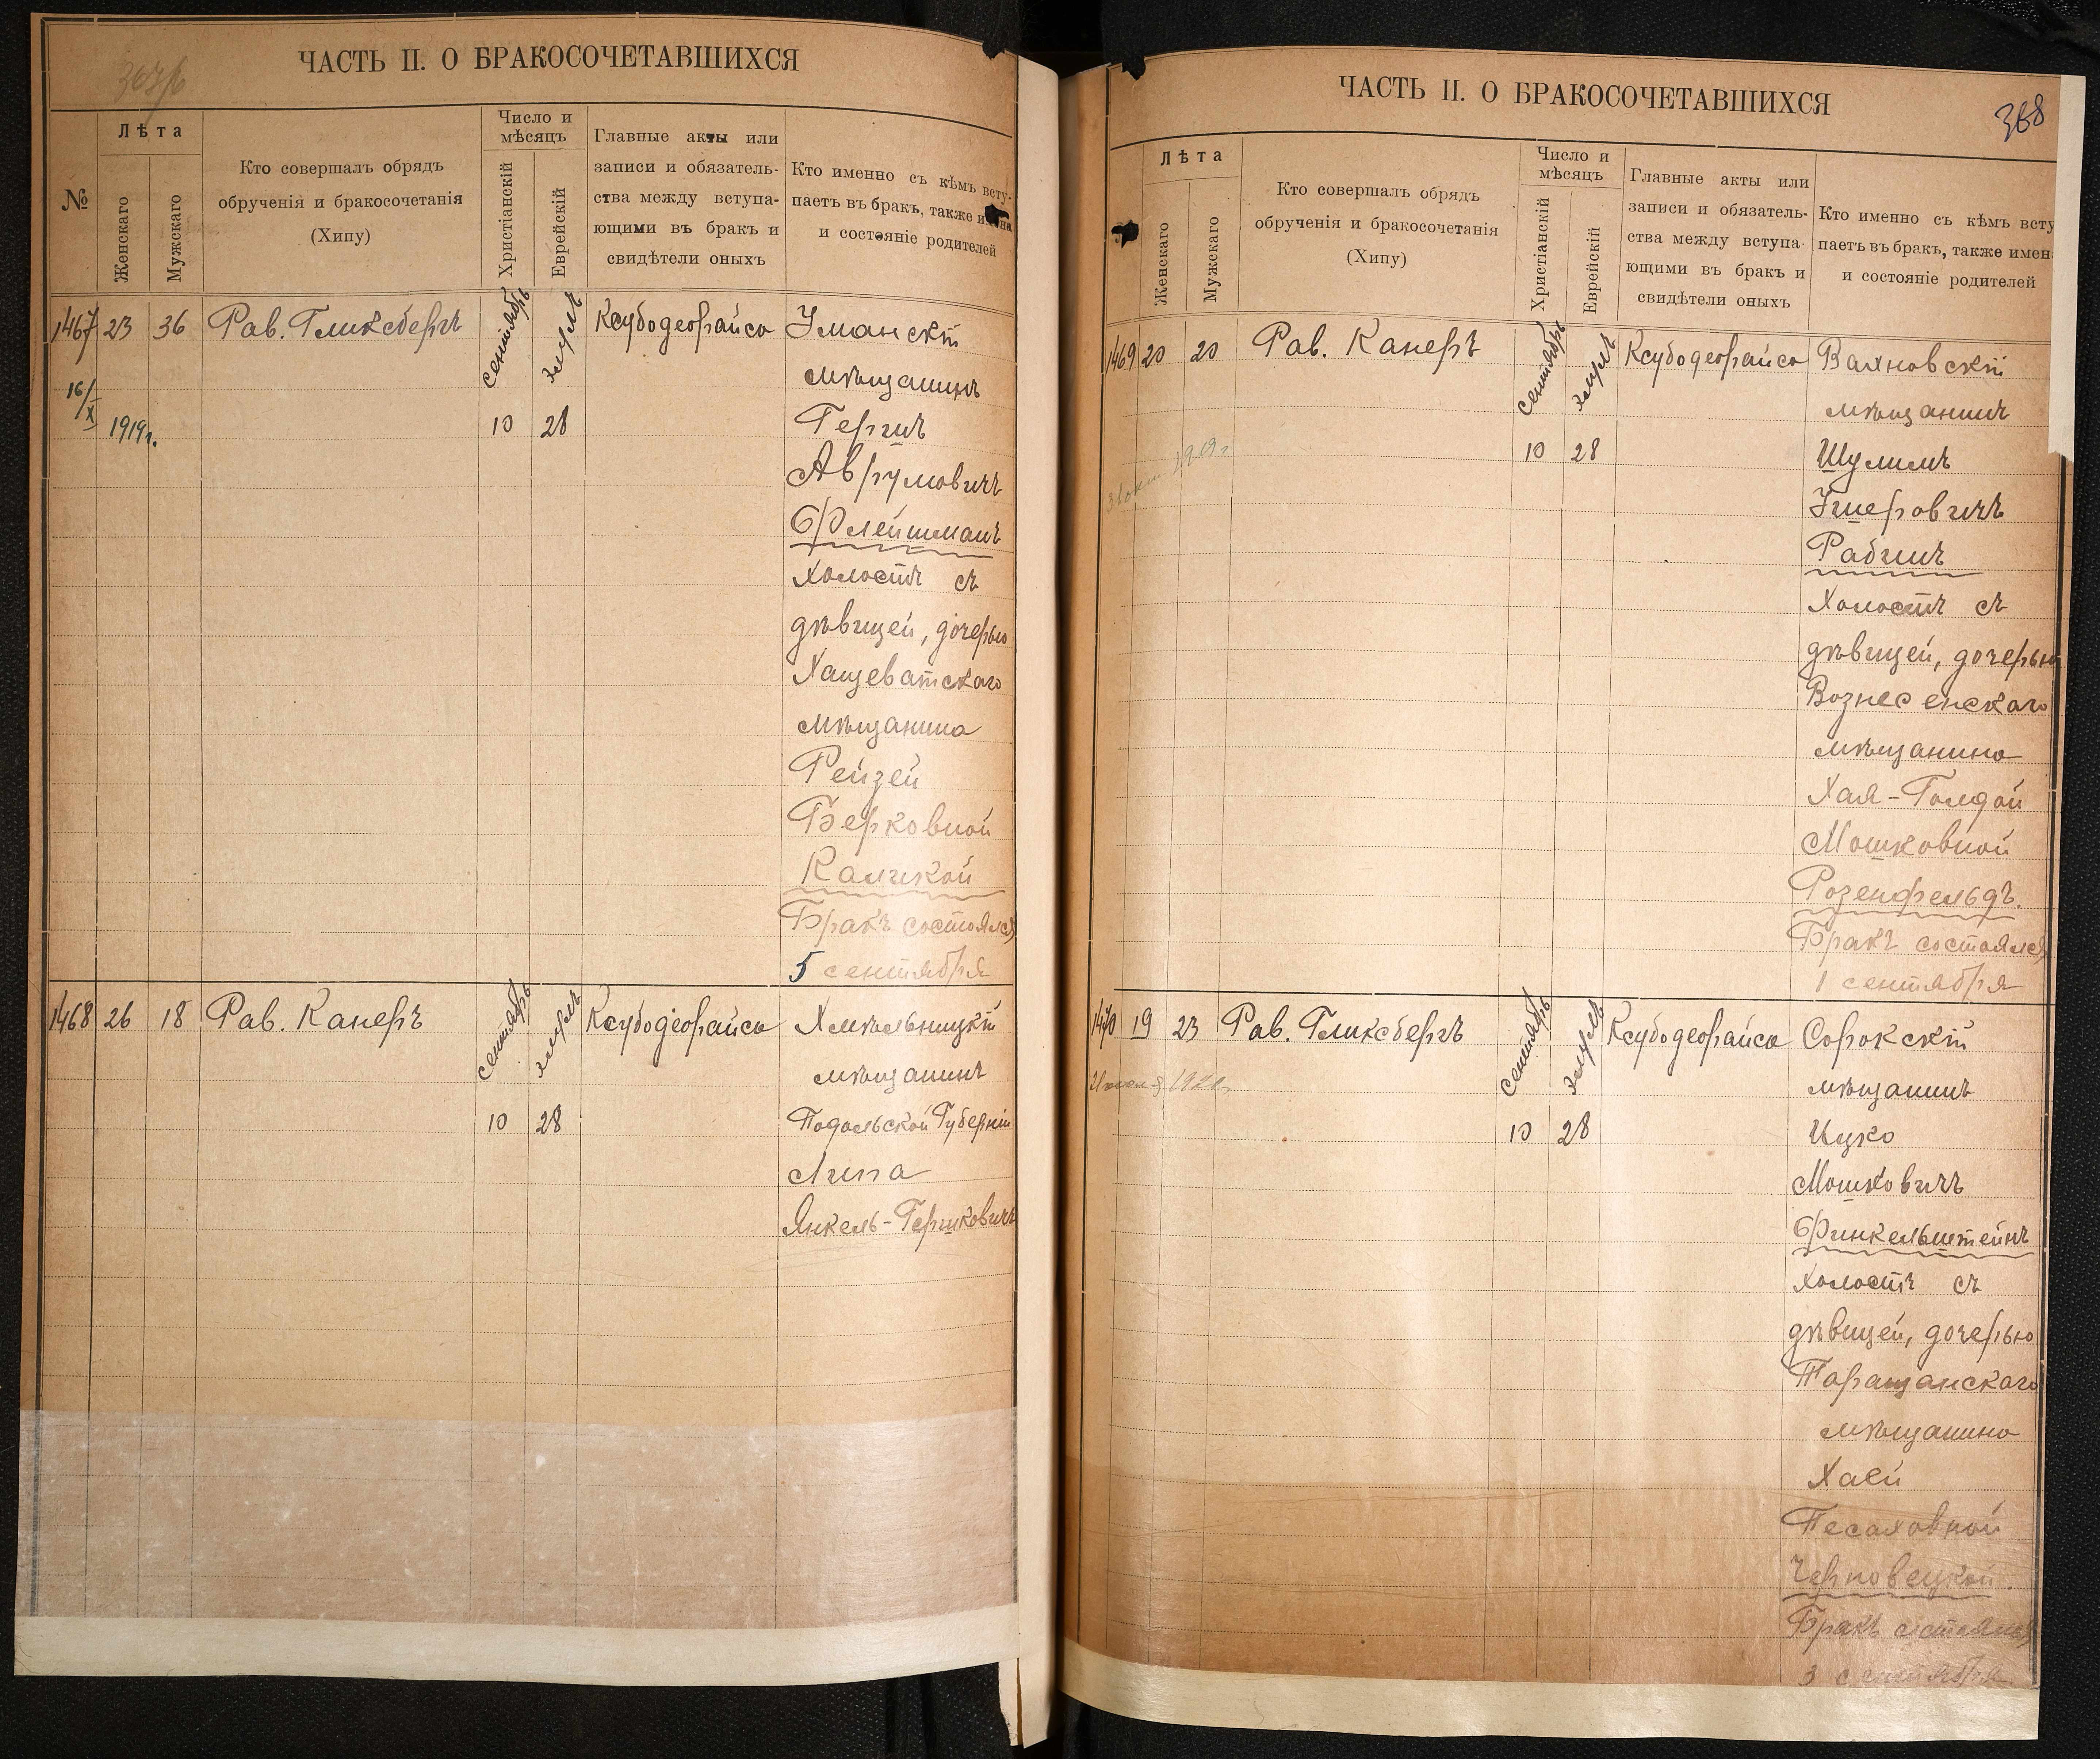 ЧАСТЬ II. О БРАКОСОЧЕТАВШИХСЯ
№
Лѣта
Женскаго
Мужскаго
Кто совершалъ обрядъ
обрученія и бракосочетанія
(Хипу)
Число и
мѣсяцъ
Христіанскій
Еврейскій
Главные акты или
записи и обязатель-
ства между вступа-
ющими въ бракъ и
свидѣтели оныхъ
Кто именно съ кѣмъ всту-
паетъ въ бракъ, также и
и состояніе родителей
1467 23 36 Рав. Гликсбергъ сентябрь элулъ Ксубодеорайсо Уманскій
мѣщанинъ
16/X 1919г. 10 28 Гершъ
Аврумовичъ
Флейшманъ
холостъ съ
дѣвицей, дочерью
Хащеватскаго
мѣщанина
Рейзей
Берковной
Бракъ состоялся
5 сентября
1468 26 18 Рав. Канеръ сентябрь элулъ Ксубодеорайсо Хмѣльницкій
мѣщанинъ
10 28 Подольской Губерніи
Липа
Янкель-Гершковичъ
ЧАСТЬ II. О БРАКОСОЧЕТАВШИХСЯ
368
Лѣта
Женскаго
Мужскаго
Кто совершалъ обрядъ
обрученія и бракосочетанія
(Хипу)
Число и
мѣсяцъ
Христіанскій
Еврейскій
Главные акты или
записи и обязатель-
ства между вступа-
ющими въ бракъ и
свидѣтели оныхъ
Кто именно съ кѣмъ всту
паетъ въ бракъ, также имен
и состояніе родителей
1469 20 20 Рав. Канеръ сентябрь элулъ Ксубодеорайсо Вахновскій
мѣщанинъ
10 28 Шулимъ
Ушеровичъ
Рабинъ
Холостъ съ
дѣвицей, дочерью
Вознесенскаго
мѣщанина
Хая-Голдой
Мошковной
Розенфельдъ.
Бракъ состоялся
1 сентября
1470 19 23 Рав. Гликсбергъ сентябрь элулъ Ксубодеорайсо Сорокскій
мѣщанинъ
10 28 Ицко
Мошковичъ
Финкельштейнъ
холостъ съ
дѣвицей, дочерью
Таращанскаго
мѣщанина
Хаей
Песаховной
Черновецкой.
Бракъ состоялся
3 сентября